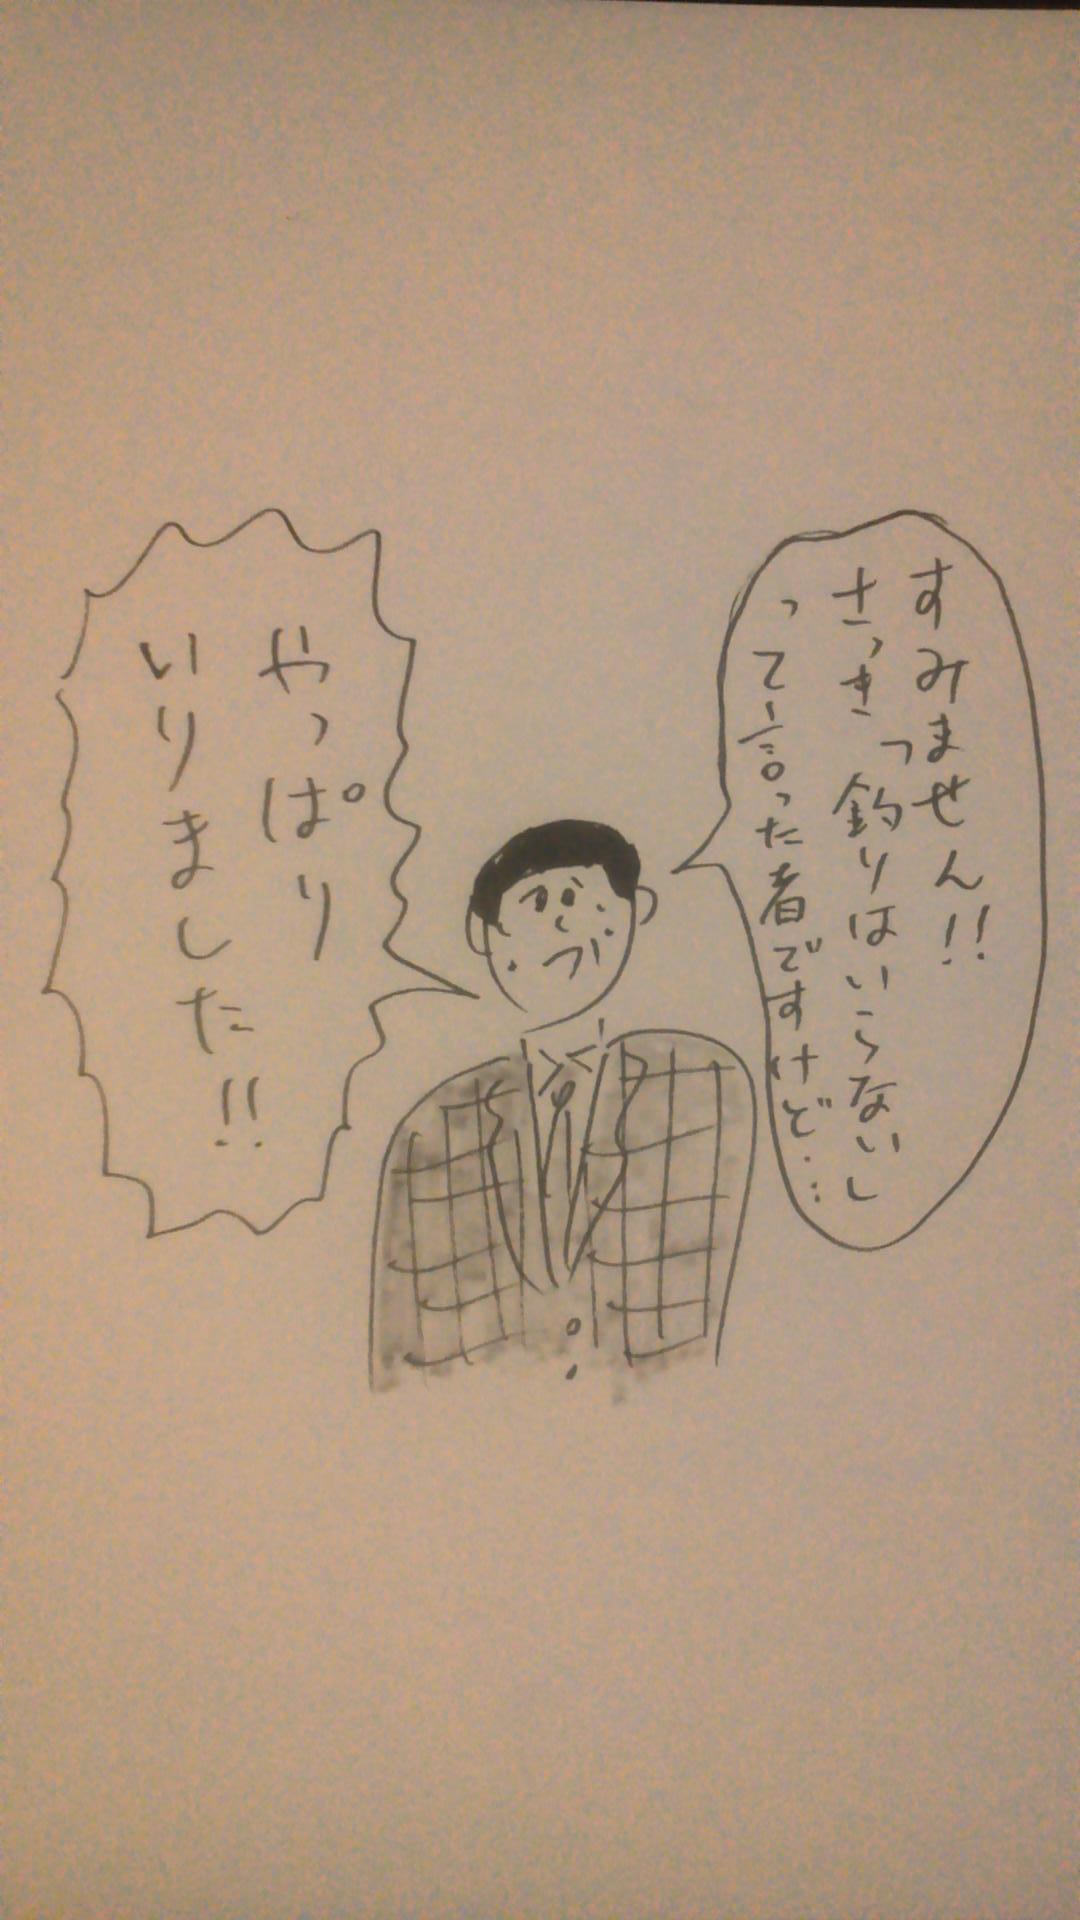 すみません!!
さっき「釣りはいらないし
って言った者ですけど…
やっぱり
いりました!!